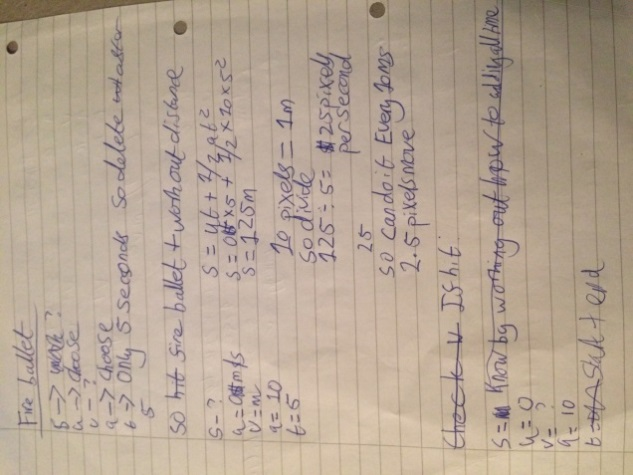 Fire bullet
s -> ?
u -> choose
v - ?
a -> choose
t -> Only 5 seconds so delete
5
So hit fire bullet + without distance
s - ?
u = 0 m/s
v = m
a = 10
t = 5
s = ut + 1/2 at²
s = 0 x 5 + 1/2 x 10 x 5²
s = 125m
10 pixels = 1m
so divide
125 ÷ 5 = 25 pixels
per second
25
so can do it Every 10ms
2.5 pixels move
Check Is hit
s = Know by working out how to adding all time
u = 0
v = ?
a = 10
t = Start + end